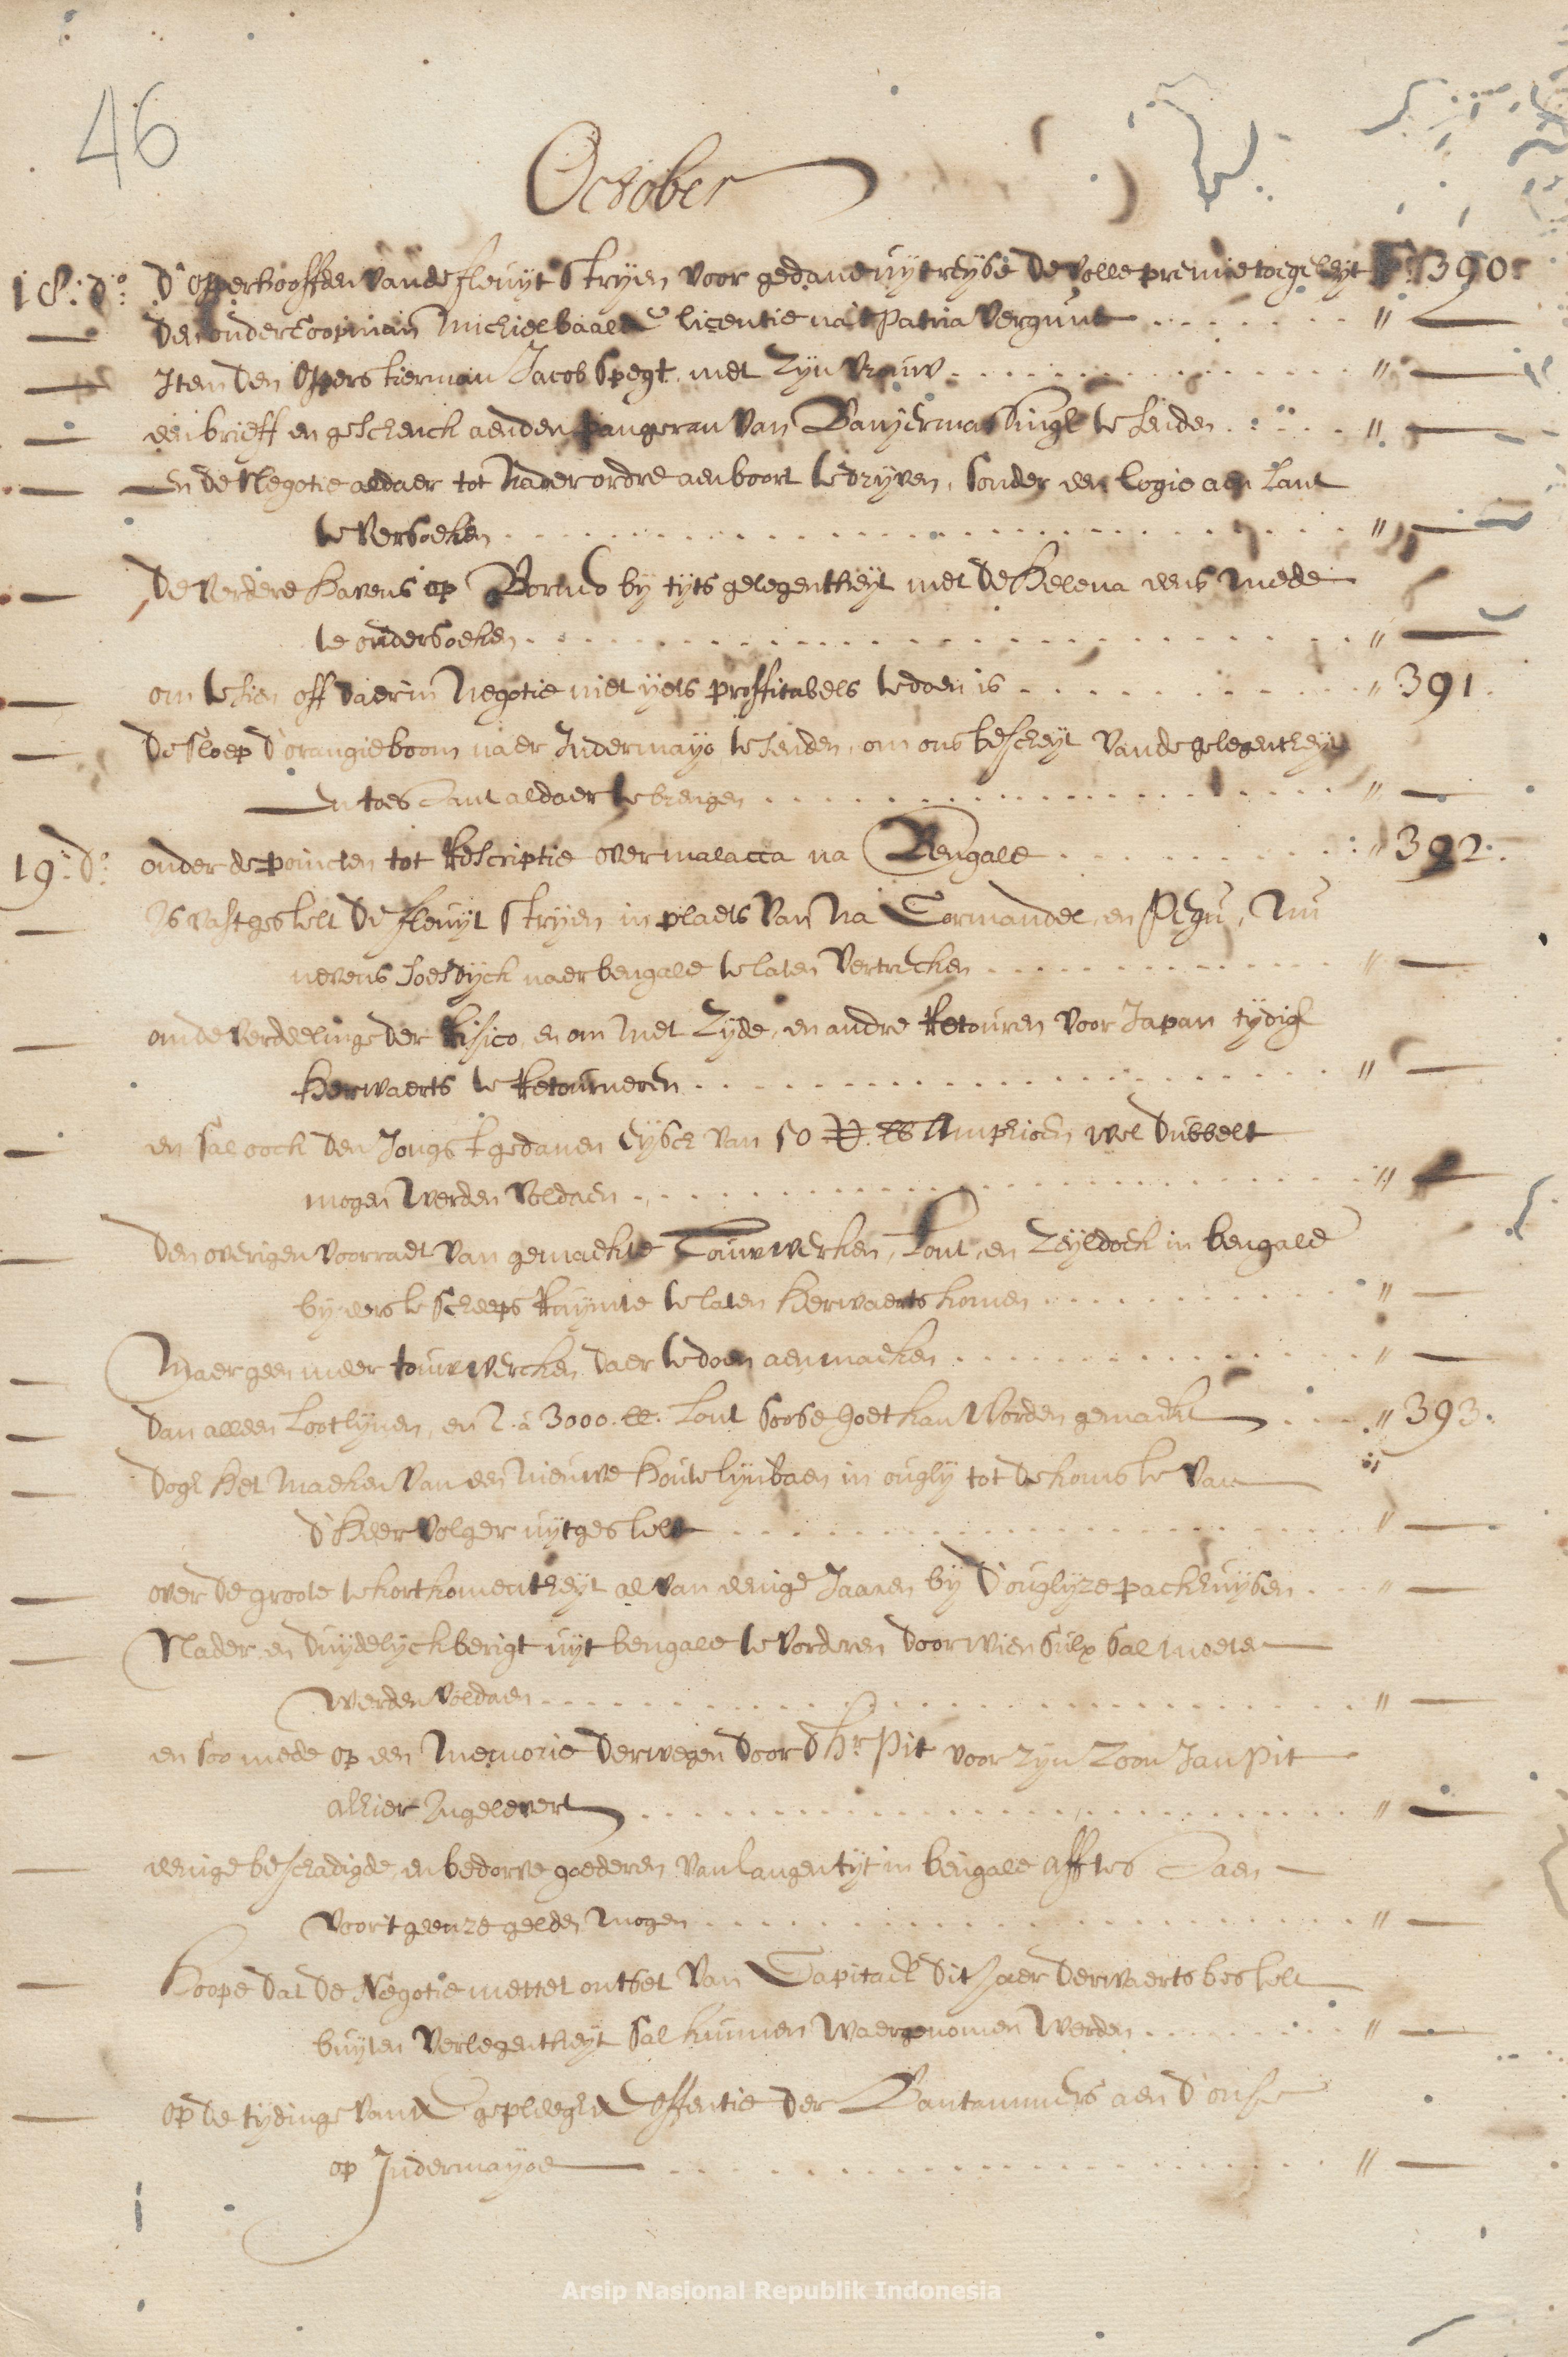 46
October
18: do: D'opperhooffden vande fleuyt Stryen voor gedane uytreyse de volle premie toegeleyt fo: 390:
— den ondercoopman Michiel baalde licentie na 't Patria vergunt . . . . . " —
— Item den opperstierman Jacob Spegt, met zijn vrouw . . . . . " —
— een brieff en geschenck aenden pangeran van Banjermassingh te senden . . . . . " —
— En de Negotie aldaer tot nader ordre aen boort te dryven, sonder een logie aen Lant
te versoeken . . . . . " —
— De verdere havens op Borneo by tyts gelegentheyt met de Helena eens mede
te ondersoeken . . . . . " —
— om te sien off daer in Negotie niet yets proffitabels te doen is . . . . . " 391.
— De sloep d'orangieboom naer Indermayo te senden, om ons bescheyt vande gelegentheyt
En toestant aldaer te brengen . . . . . " —
19: do: onder de poincten tot rescriptie over malacca na Bengale . . . . . " 392:
— Is vastgestelt de fleuyt Stryen in plaets van na Cormandel, en Pegu, Nu
nevens Soesdyck naer bengale te laten vertrecken . . . . . " —
— om de verdeelinge der risico, en om met Zyde, en andre retouren voor Japan tydigh
herwaerts te retourneren . . . . . " —
— en sal oock den Jongst gedanen Eysch van 50 lb Amphioen wel dubbelt
mogen werden voldaen . . . . . " —
— Den overigen voorraet van gemaekte Touwwerken, Lont, en Zeyldoek in bengale
by eerste scheeps ruymte te laten herwaerts komen . . . . . " —
— Maer geen meer touwwercken daer te doen aenmaeken . . . . . " —
— dan alleen Lootlynen, en 2 à 3000. lb. Lont soo se goet kan worden gemaekt . . . " 393.
— dogh het maeken van een nieuwe houte lynbaen in ougly tot de komste van
d'Heer Volger uytgestelt . . . . . " —
— over de groote te kortkomentheyt al van eenige Jaaren by d'ouglyze packhuysen . . " —
— Nader, en duydelyck berigt uyt bengale te vorderen door wien sulx sal moeten
werden voldaen . . . . . " —
— en soo mede op een Memorie derwegen door d'hr. Pit voor zyn Zoon Jan Pit
alhier Ingelevert . . . . . " —
— eenige beschadigde, en bedorve goederen van langen tyt in bengale aff te slaen
voor 't geen ze gelden mogen . . . . . " —
— Hoope dat de Negotie met het ontset van Capitael dit Jaer derwaerts bestelt
buyten verlegentheyt sal kunnen waergenomen werden . . . . . " —
— op de tydinge vande gepleegde offentie der Bantammers aen d'onse
op Indermayoe . . . . . " —
Arsip Nasional Republik Indonesia